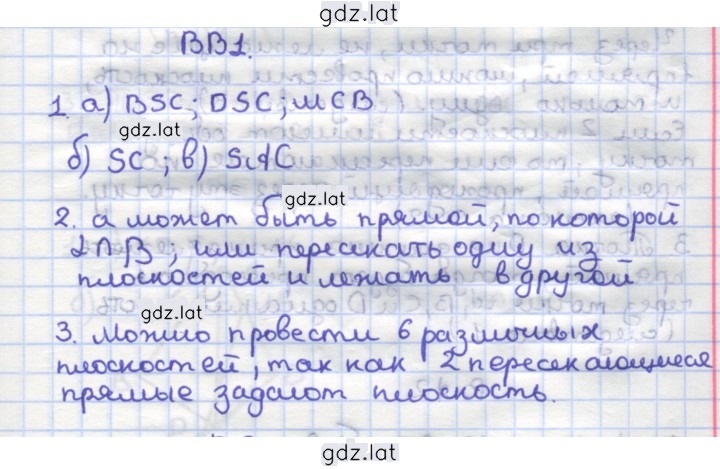 gdz.lat
ВВ1.
1. а) BSC; DSC; MCB
gdz.lat
б) SC; в) SAC
gdz.lat
2. а может быть прямой, по которой
α∩β; или пересекать одну из
плоскостей и лежать в другой
gdz.lat
3. Можно провести 6 различных
плоскостей, так как 2 пересекающиеся
прямые задают плоскость.
gdz.lat